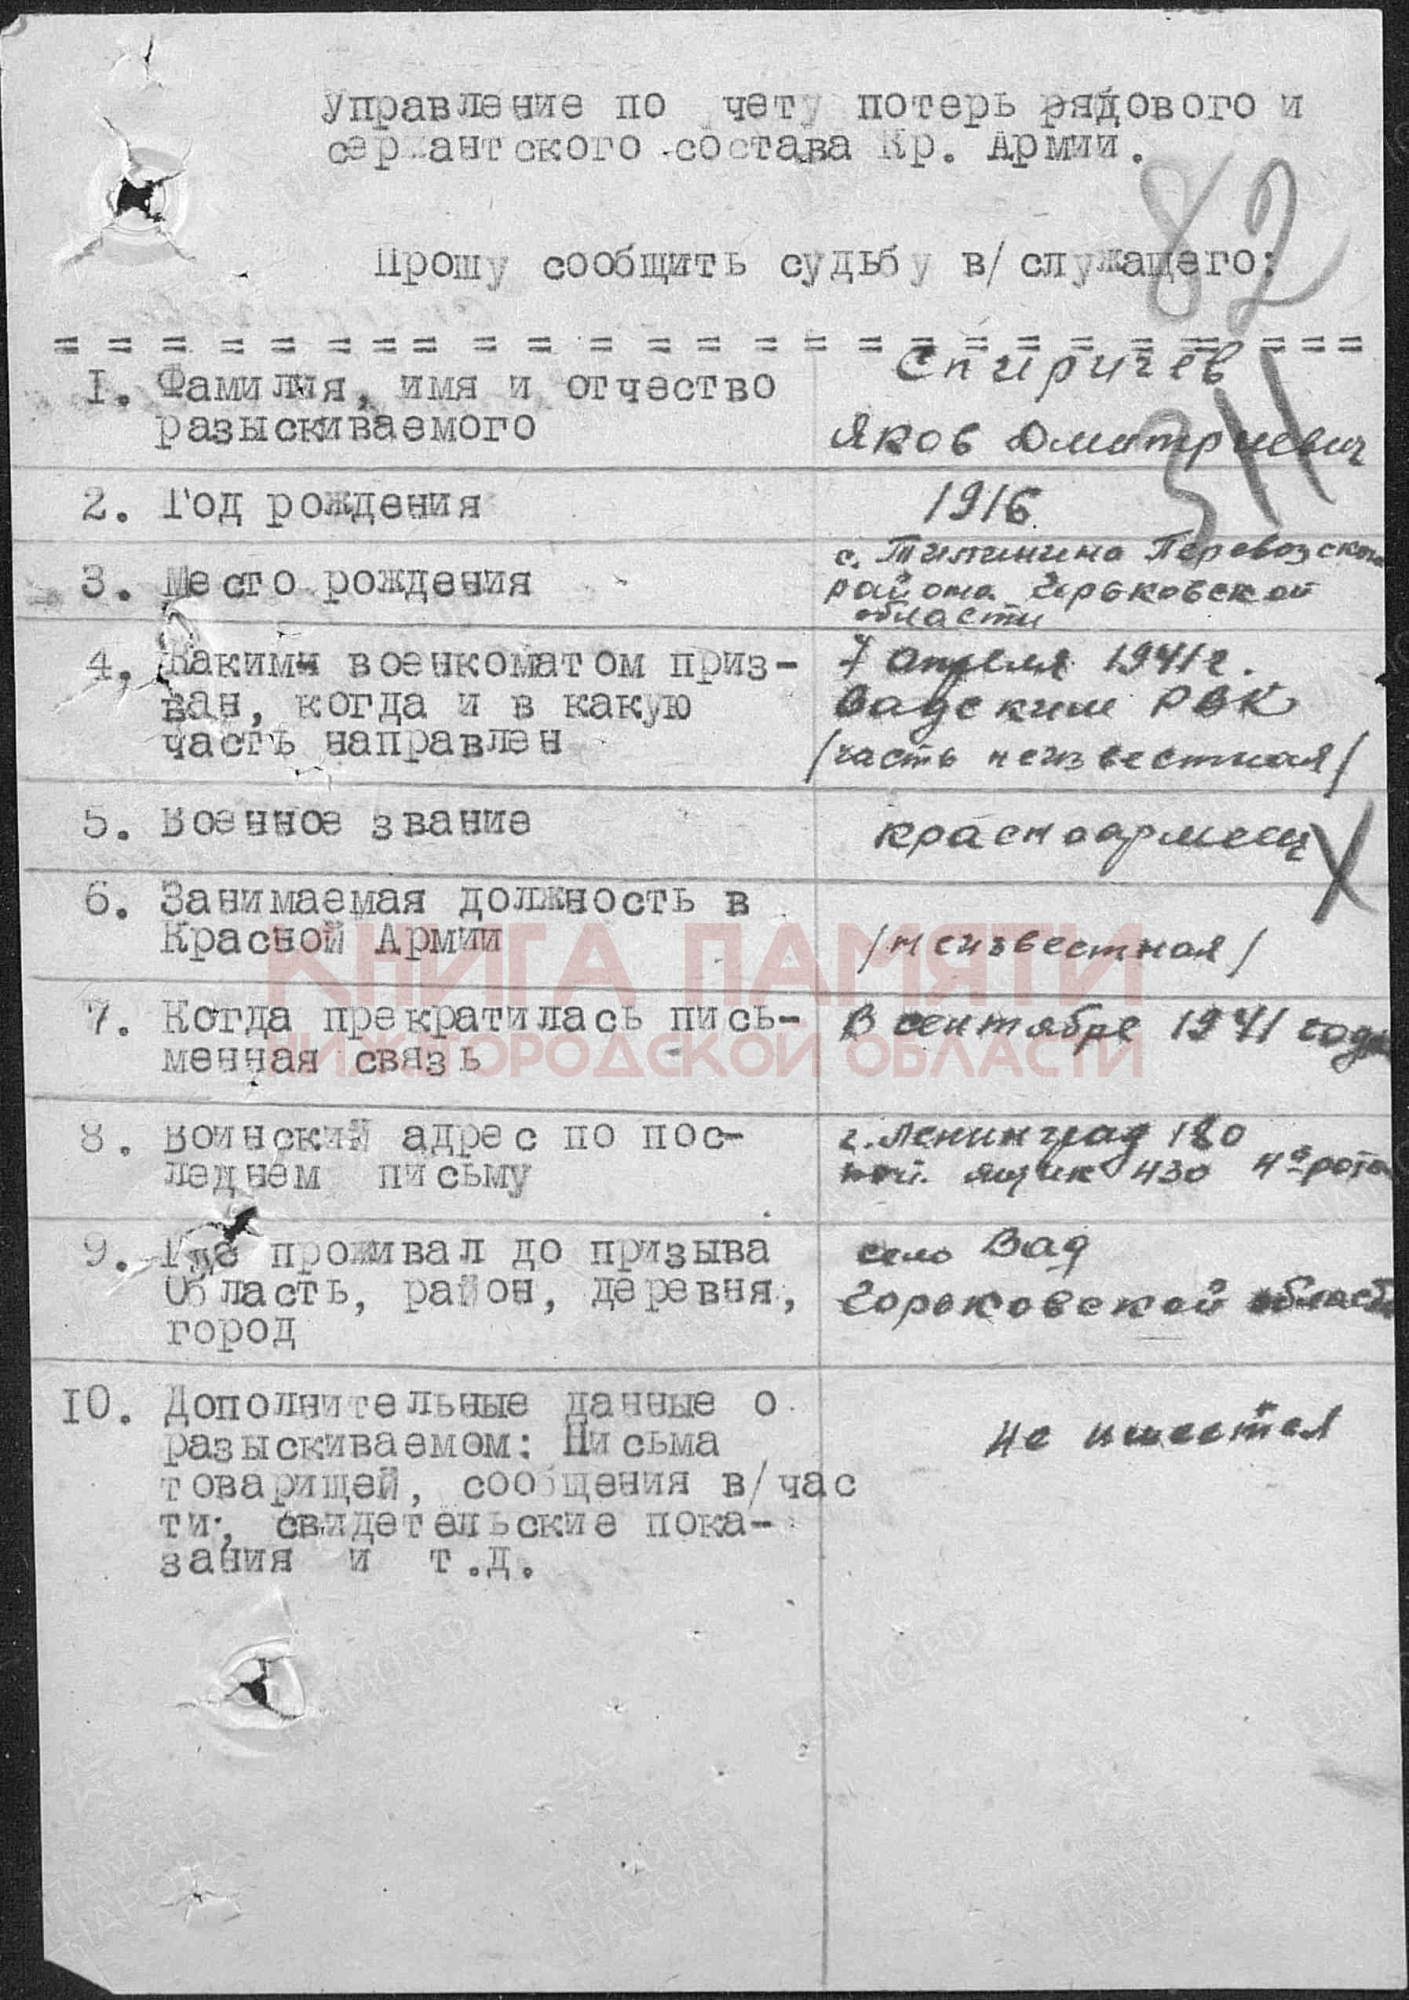 Управление по учету потерь рядового и
сержантского состава Кр. Армии.
82
Прошу сообщить судьбу в/служащего:
= = = = = = = = = = = = = = = = = = = = = = = = =
1. Фамилия, имя и отчество
разыскиваемого
Спиричев
Яков Дмитриевич
2. Год рождения
1916
3. Место рождения
с. Перевозского
района Горьковской
области
4. Каким военкоматом приз-
ван, когда и в какую
часть направлен
7 апреля 1941 г.
Вадским РВК
/часть неизвестная/
5. Военное звание
красноармеец
6. Занимаемая должность в
Красной Армии
/неизвестная/
7. Когда прекратилась пись-
менная связь
В сентябре 1941 года
8. Воинский адрес по пос-
леднем письму
г. Ленинград 180
ящик 430 4а рота
9. Где проживал до призыва
Область, район, деревня,
город
село Вад
Горьковской области
10. Дополнительные данные о
разыскиваемом: Письма
товарищей, сообщения в/час
ти, свидетельские пока-
зания и т.д.
не имеется
КНИГА ПАМЯТИ
НИЖГОРОДСКОЙ ОБЛАСТИ